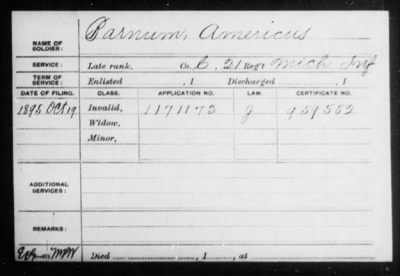 NAME OF SOLDIER: Parnum, Americus
SERVICE: Late rank, Co. C, 21 Reg't Mich Inf
TERM OF SERVICE: Enlisted , 1 Discharged , 1
DATE OF FILING. CLASS. APPLICATION NO. LAW. CERTIFICATE NO.
1895 Oct 19 Invalid, 1171173 J 959552
Widow,
Minor,
ADDITIONAL SERVICES:
REMARKS:
Died , 1 , at